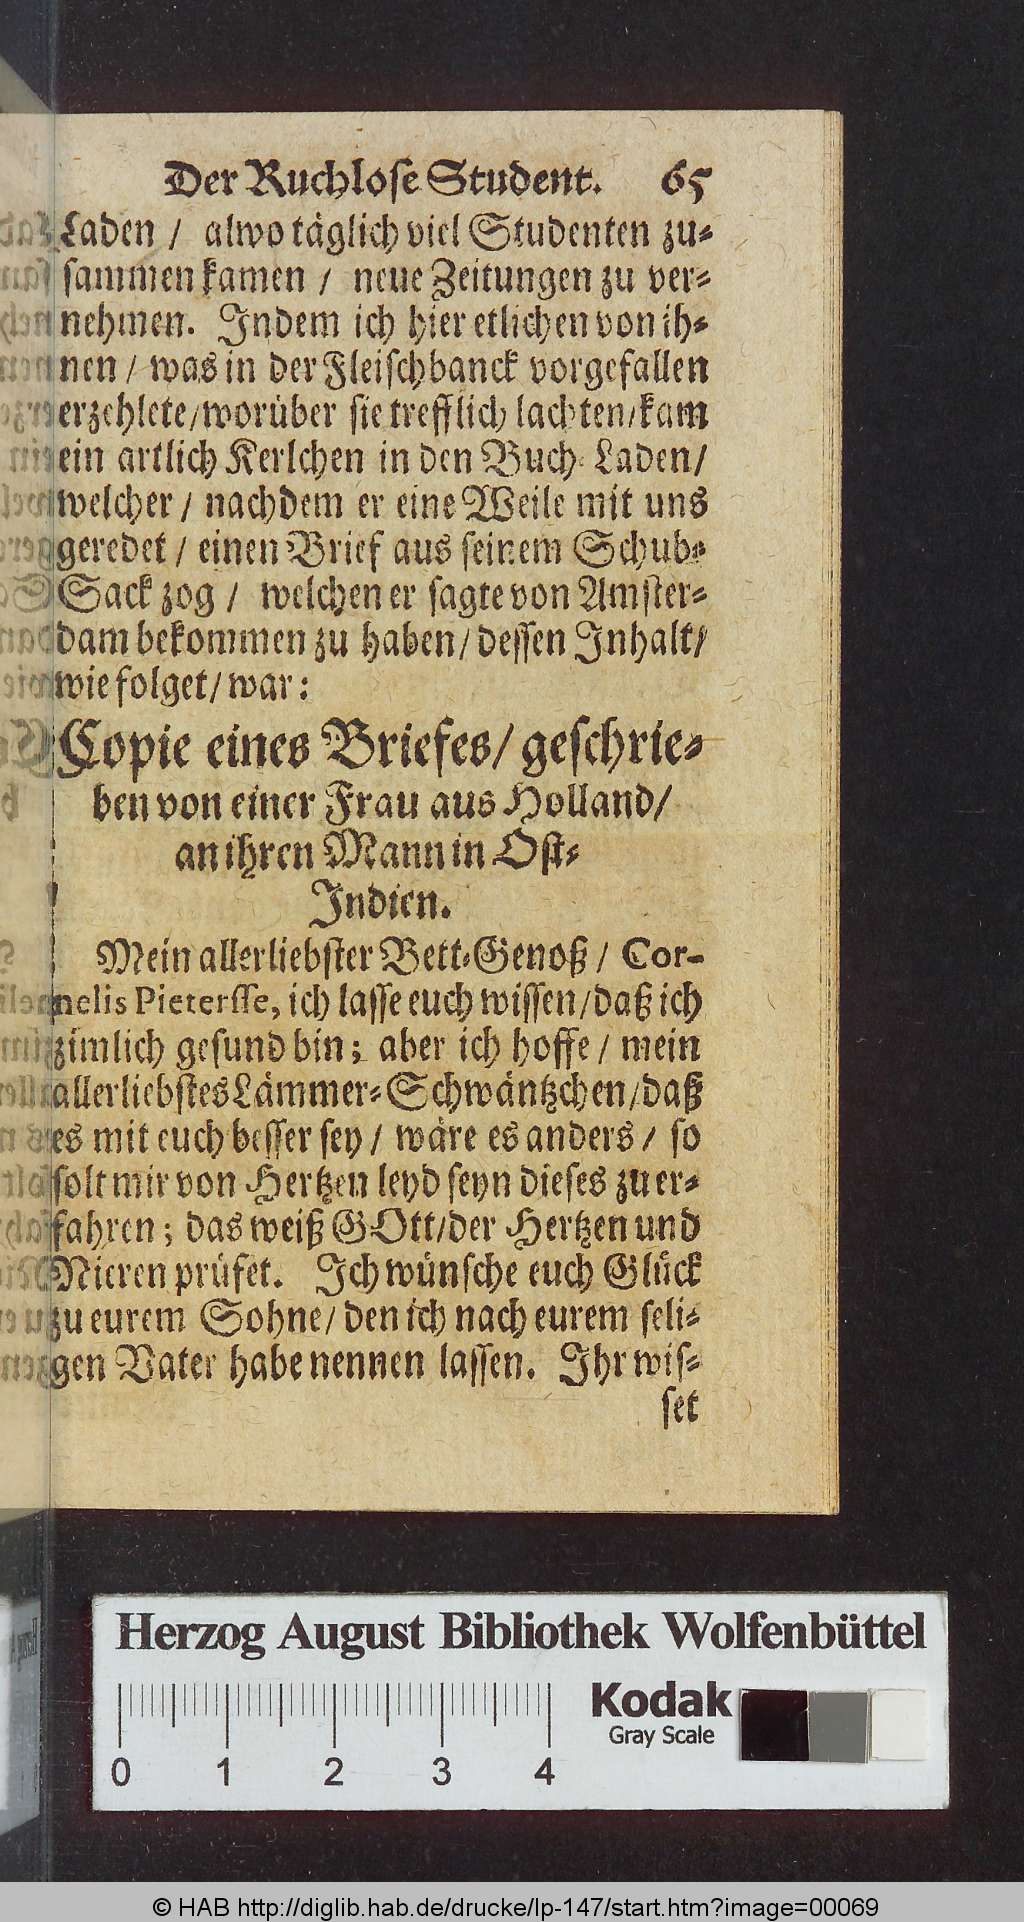 Der Ruchlose Student. 65
Laden / alwo täglich viel Studenten zu-
sammen kamen / neue Zeitungen zu ver-
nehmen. Indem ich hier etlichen von ih-
nen / was in der Fleischbanck vorgefallen
erzehlete / worüber sie trefflich lachten / kam
ein artlich Kerlchen in den Buch-Laden /
welcher / nachdem er eine Weile mit uns
geredet / einen Brief aus seinem Schub-
Sack zog / welchen er sagte von Amster-
dam bekommen zu haben / dessen Inhalt /
wie folget / war :
Copie eines Briefes / geschrie-
ben von einer Frau aus Holland /
an ihren Mann in Ost-
Indien.
Mein allerliebster Bett-Genoß / Cor-
nelis Pietersse, ich lasse euch wissen / daß ich
zimlich gesund bin ; aber ich hoffe / mein
allerliebstes Lämmer-Schwäntzchen / daß
es mit euch besser sey / wäre es anders / so
solt mir von Hertzen leyd seyn dieses zu er-
fahren ; das weiß GOtt / der Hertzen und
Nieren prüfet. Ich wünsche euch Glück
zu eurem Sohne / den ich nach eurem seli-
gen Vater habe nennen lassen. Ihr wis-
set
Herzog August Bibliothek Wolfenbüttel
Kodak
Gray Scale
0 1 2 3 4
© HAB http://diglib.hab.de/drucke/lp-147/start.htm?image=00069